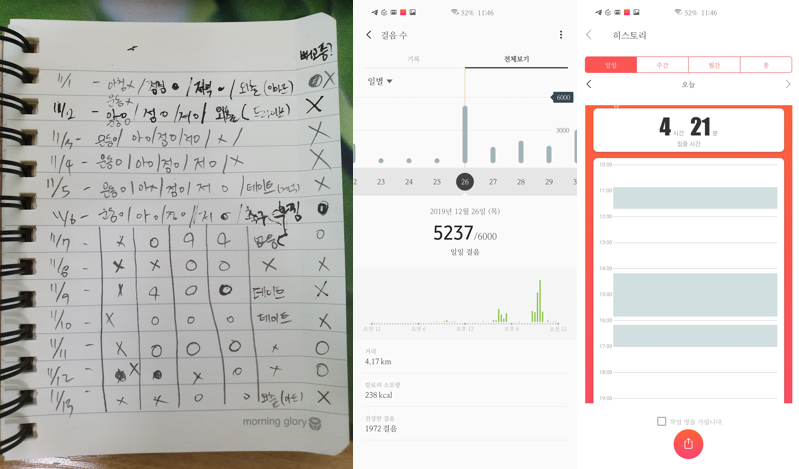 바꼬 등?
11/1 - 아침 x / 점심 / 저녁 / 외출 (아아드) x
11/2 - 운동 / 점 o / 저 / 외출 x
11/3 - 운동 / 아 / 점 / 저 o / x /
11/4 - 운동 / 아 / 점 / 저 o / x x
11/5 - 운동 o / 아 / 점 / 저 o / 데이트 x
11/6 - 운동 / 아 / 점 / 저 축구
11/7 - x o o
11/8 - x x o o x x
11/9 - x o o 데이트 x
11/10 - x o o o 데이트 x
11/11 x o o o x o
11/12 - x x o x o
11/13 - x x o o 외출 x
morning glory
52% 11:46
걸음 수
기록 전체보기
일별
6000
3000
2 23 24 25 26 27 28 29 3
2019년 12월 26일 (목)
5237/6000
일일 걸음
오전 12 오전 6 오후 12 오후 6 오전 12
거리
4.17 km
칼로리 소모량
238 kcal
건강한 걸음
1972 걸음
52% 11:46
히스토리
일일 주간 월간 총
오늘
4 시간 21 분
집중 시간
10:00
11:00
12:00
13:00
14:00
15:00
16:00
17:00
18:00
19:00
작업 명을 가립니다.